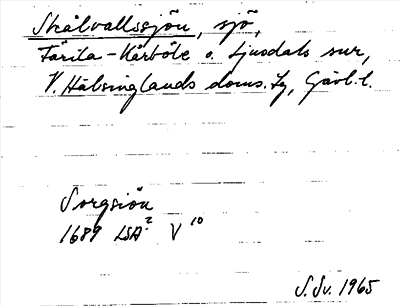 Skålvallssjön, sjö,
Färila-Kårböle o. Ljusdals snr,
V. Hälsinglands doms. Lg, Gävl. l.
Sorgsiön
1689 LSA? V 10
S. Sv. 1965